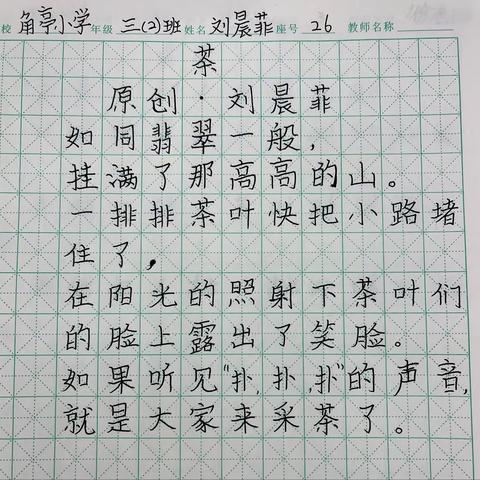 校 角亭小学 年级 三(2)班 姓名 刘晨菲 座号 26 教师名称
茶
原创·刘晨菲
如同翡翠一般，
挂满了那高高的山。
一排排茶叶快把小路堵
住了，
在阳光的照射下茶叶们
的脸上露出了笑脸。
如果听见“扑，扑，扑”的声音，
就是大家来采茶了。